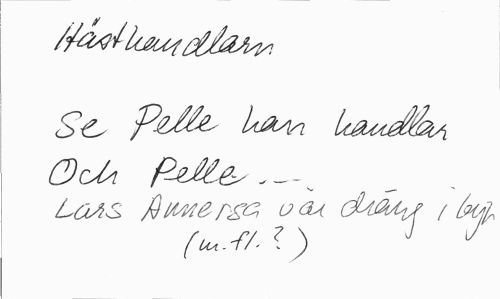 Hästhandlarn
Se Pelle han handlar
Och Pelle . – –
Lars Annersa vår dräng i byn
(m.fl.?)